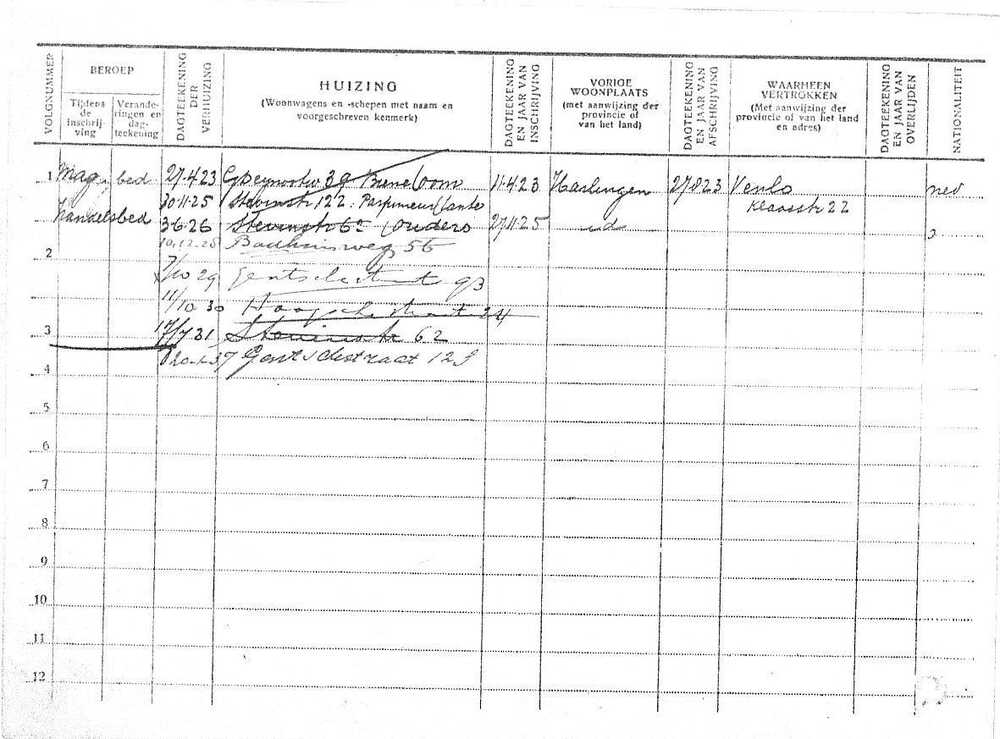 VOLGNUMMER
BEROEP
Tijdens de inschrij- ving
Verande- ringen en dag- teekening
DAGTEEKENING DER VERHUIZING
HUIZING
(Woonwagens en -schepen met naam en
voorgeschreven kenmerk)
DAGTEEKENING EN JAAR VAN INSCHRIJVING
VORIGE WOONPLAATS
(met aanwijzing der provincie of van het land)
DAGTEEKENING EN JAAR VAN AFSCHRIJVING
WAARHEEN VERTROKKEN
(Met aanwijzing der provincie of van het land en adres)
DAGTEEKENING EN JAAR VAN OVERLIJDEN
NATIONALITEIT
1 Mag. bed 27.4.23 39 11.4.23 Harlingen 27.8.23 Venlo ned
30.11.25 Stevinstr 122 Klaasstr 22
handelsbed 3.6.26 Stevinstr 62 (ouders 27.11.25 id
Badhuisweg 56
2
7/10 29 Gentschestraat 93
11/10 30 Haagschestraat 24
3 17/7 31 Stevinstr 62
37 Gentschestraat
4
5
6
7
8
9
10
11
12